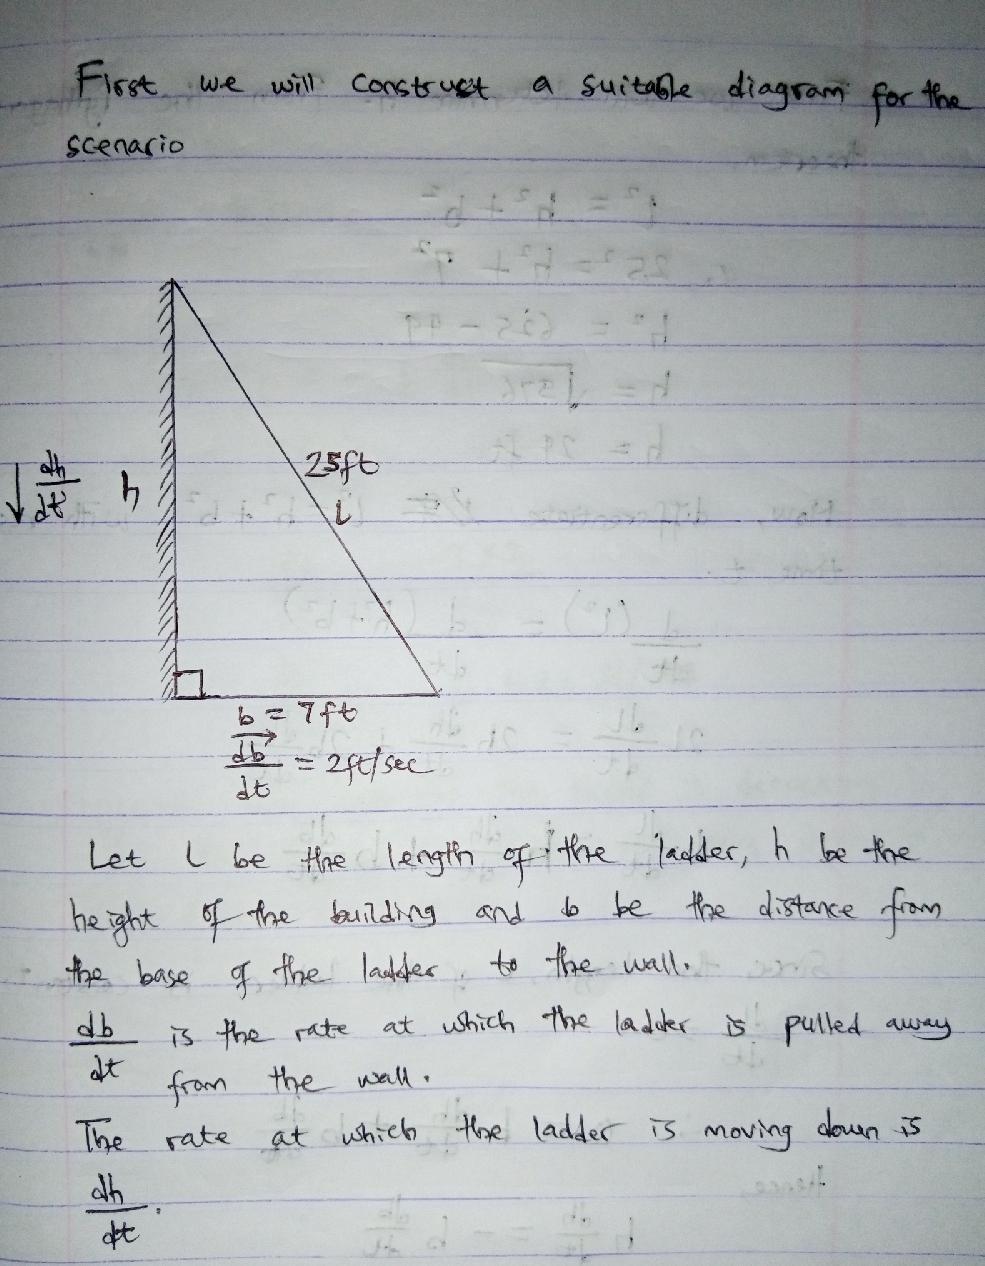 First we will construct a suitable diagram for the
scenario
25ft
dh/dt
h
l
b = 7ft
db/dt = 2ft/sec
Let l be the length of the ladder, h be the
height of the building and b be the distance from
the base of the ladder to the wall.
db/dt is the rate at which the ladder is pulled away
from the wall.
The rate at which the ladder is moving down is
dh/dt.